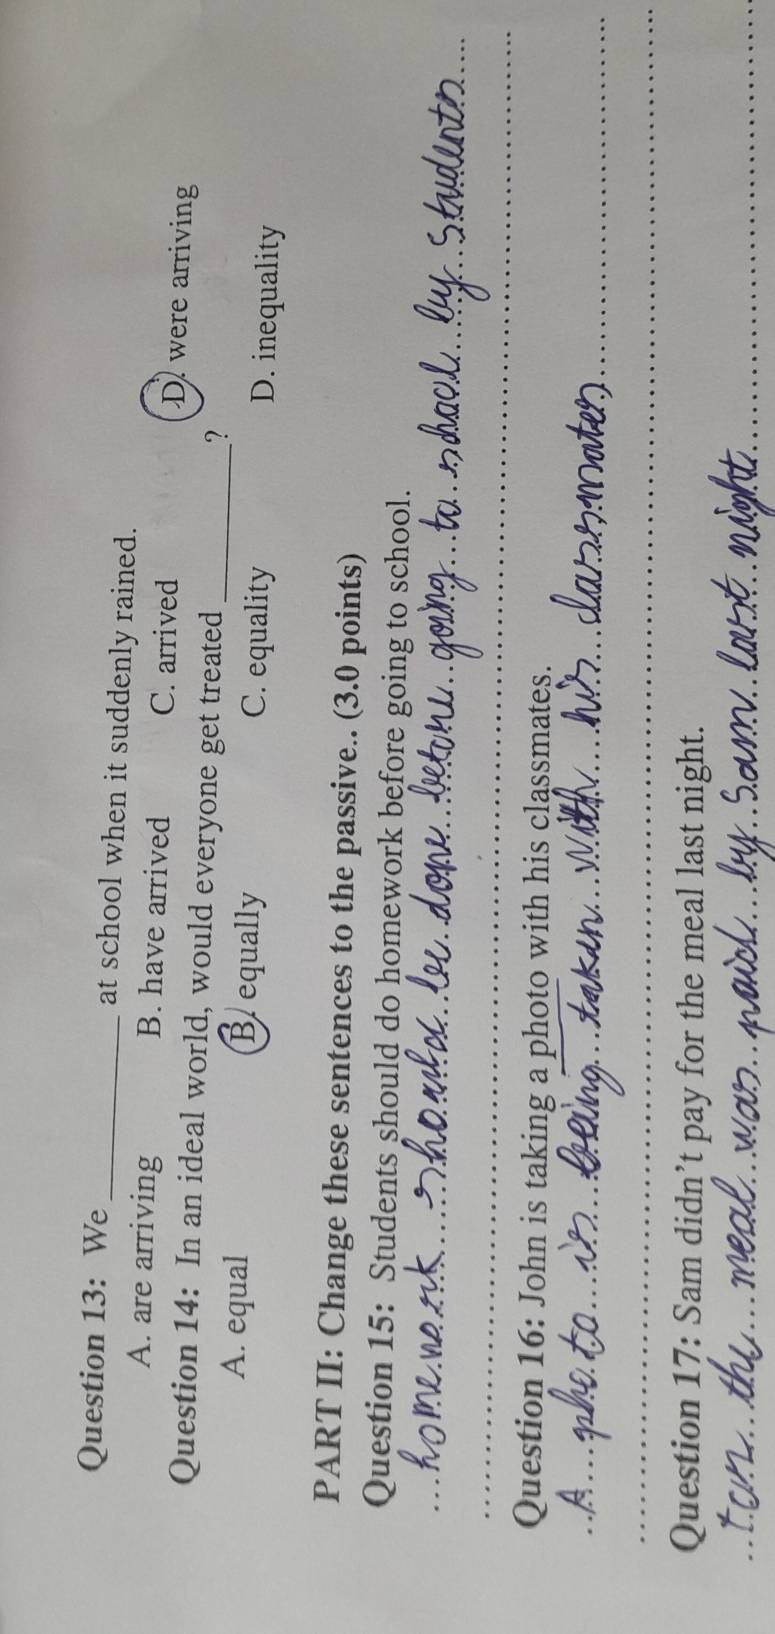 Question 13: We __________ at school when it suddenly rained.
A. are arriving B. have arrived C. arrived D. were arriving
Question 14: In an ideal world, would everyone get treated __________?
A. equal B. equally C. equality D. inequality
PART II: Change these sentences to the passive.. (3.0 points)
Question 15: Students should do homework before going to school.
home work should be done before going to school by students
Question 16: John is taking a photo with his classmates.
A photo is being taken with his classmates
Question 17: Sam didn't pay for the meal last night.
the meal was paid by Sam last night